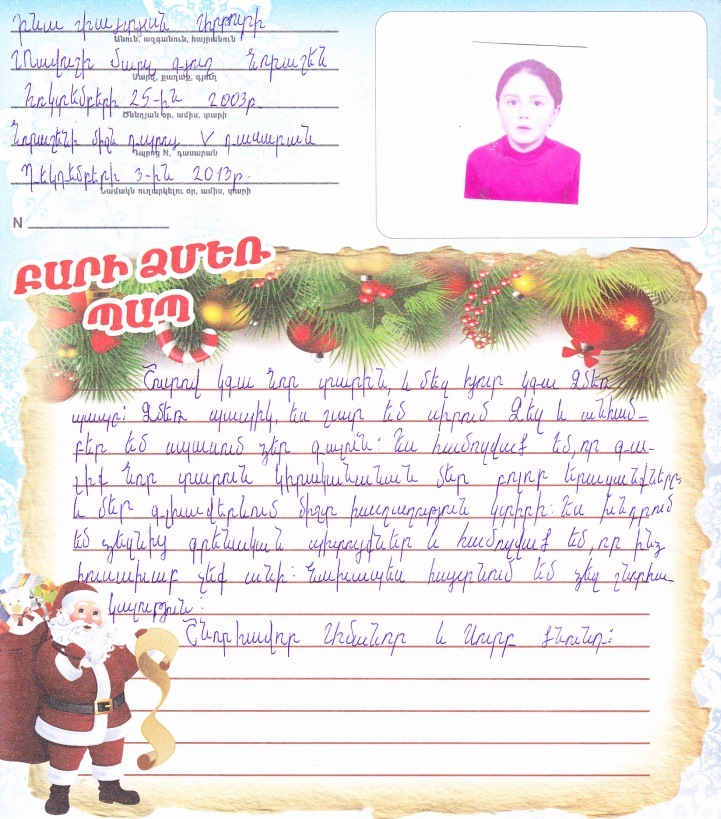 Անուն, ազգանուն, հայրանուն
Տավուշի մարզ, գյուղ Նորաշեն
Մարզ, քաղաք, գյուղ
հոկտեմբերի 25-ին 2003թ
Ծննդյան օր, ամիս, տարի
Նորաշենի միջն դպրոց V դասարան
Դպրոց N, դասարան
Դեկտեմբերի 3-ին 2013թ.
Նամակն ուղարկելու օր, ամիս, տարի
N
ԲԱՐԻ ՁՄԵՌ
ՊԱՊ
Շուտով կգա Նոր տարին, և մեզ հյուր կգա Ձմեռ
պապը: Ձմեռ պապիկ, ես շատ եմ սիրում Ձեզ և անհամ-
բեր եմ սպասում ձեր գալուն: Ես համոզված եմ, որ գա-
լիք նոր տարում կիրականանան մեր բոլոր երազանքները
և մեր գլխավերևում միշտ խաղաղություն կտիրի: Ես խնդրում
եմ ձեզնից գրենական պիտույքներ և համոզված եմ, որ ինձ
հուսախաբ չեք անի: Նախապես հայտնում եմ ձեզ շնորհա-
կալություն:
Շնորհավոր Ամանոր և Սուրբ Ծնունդ: